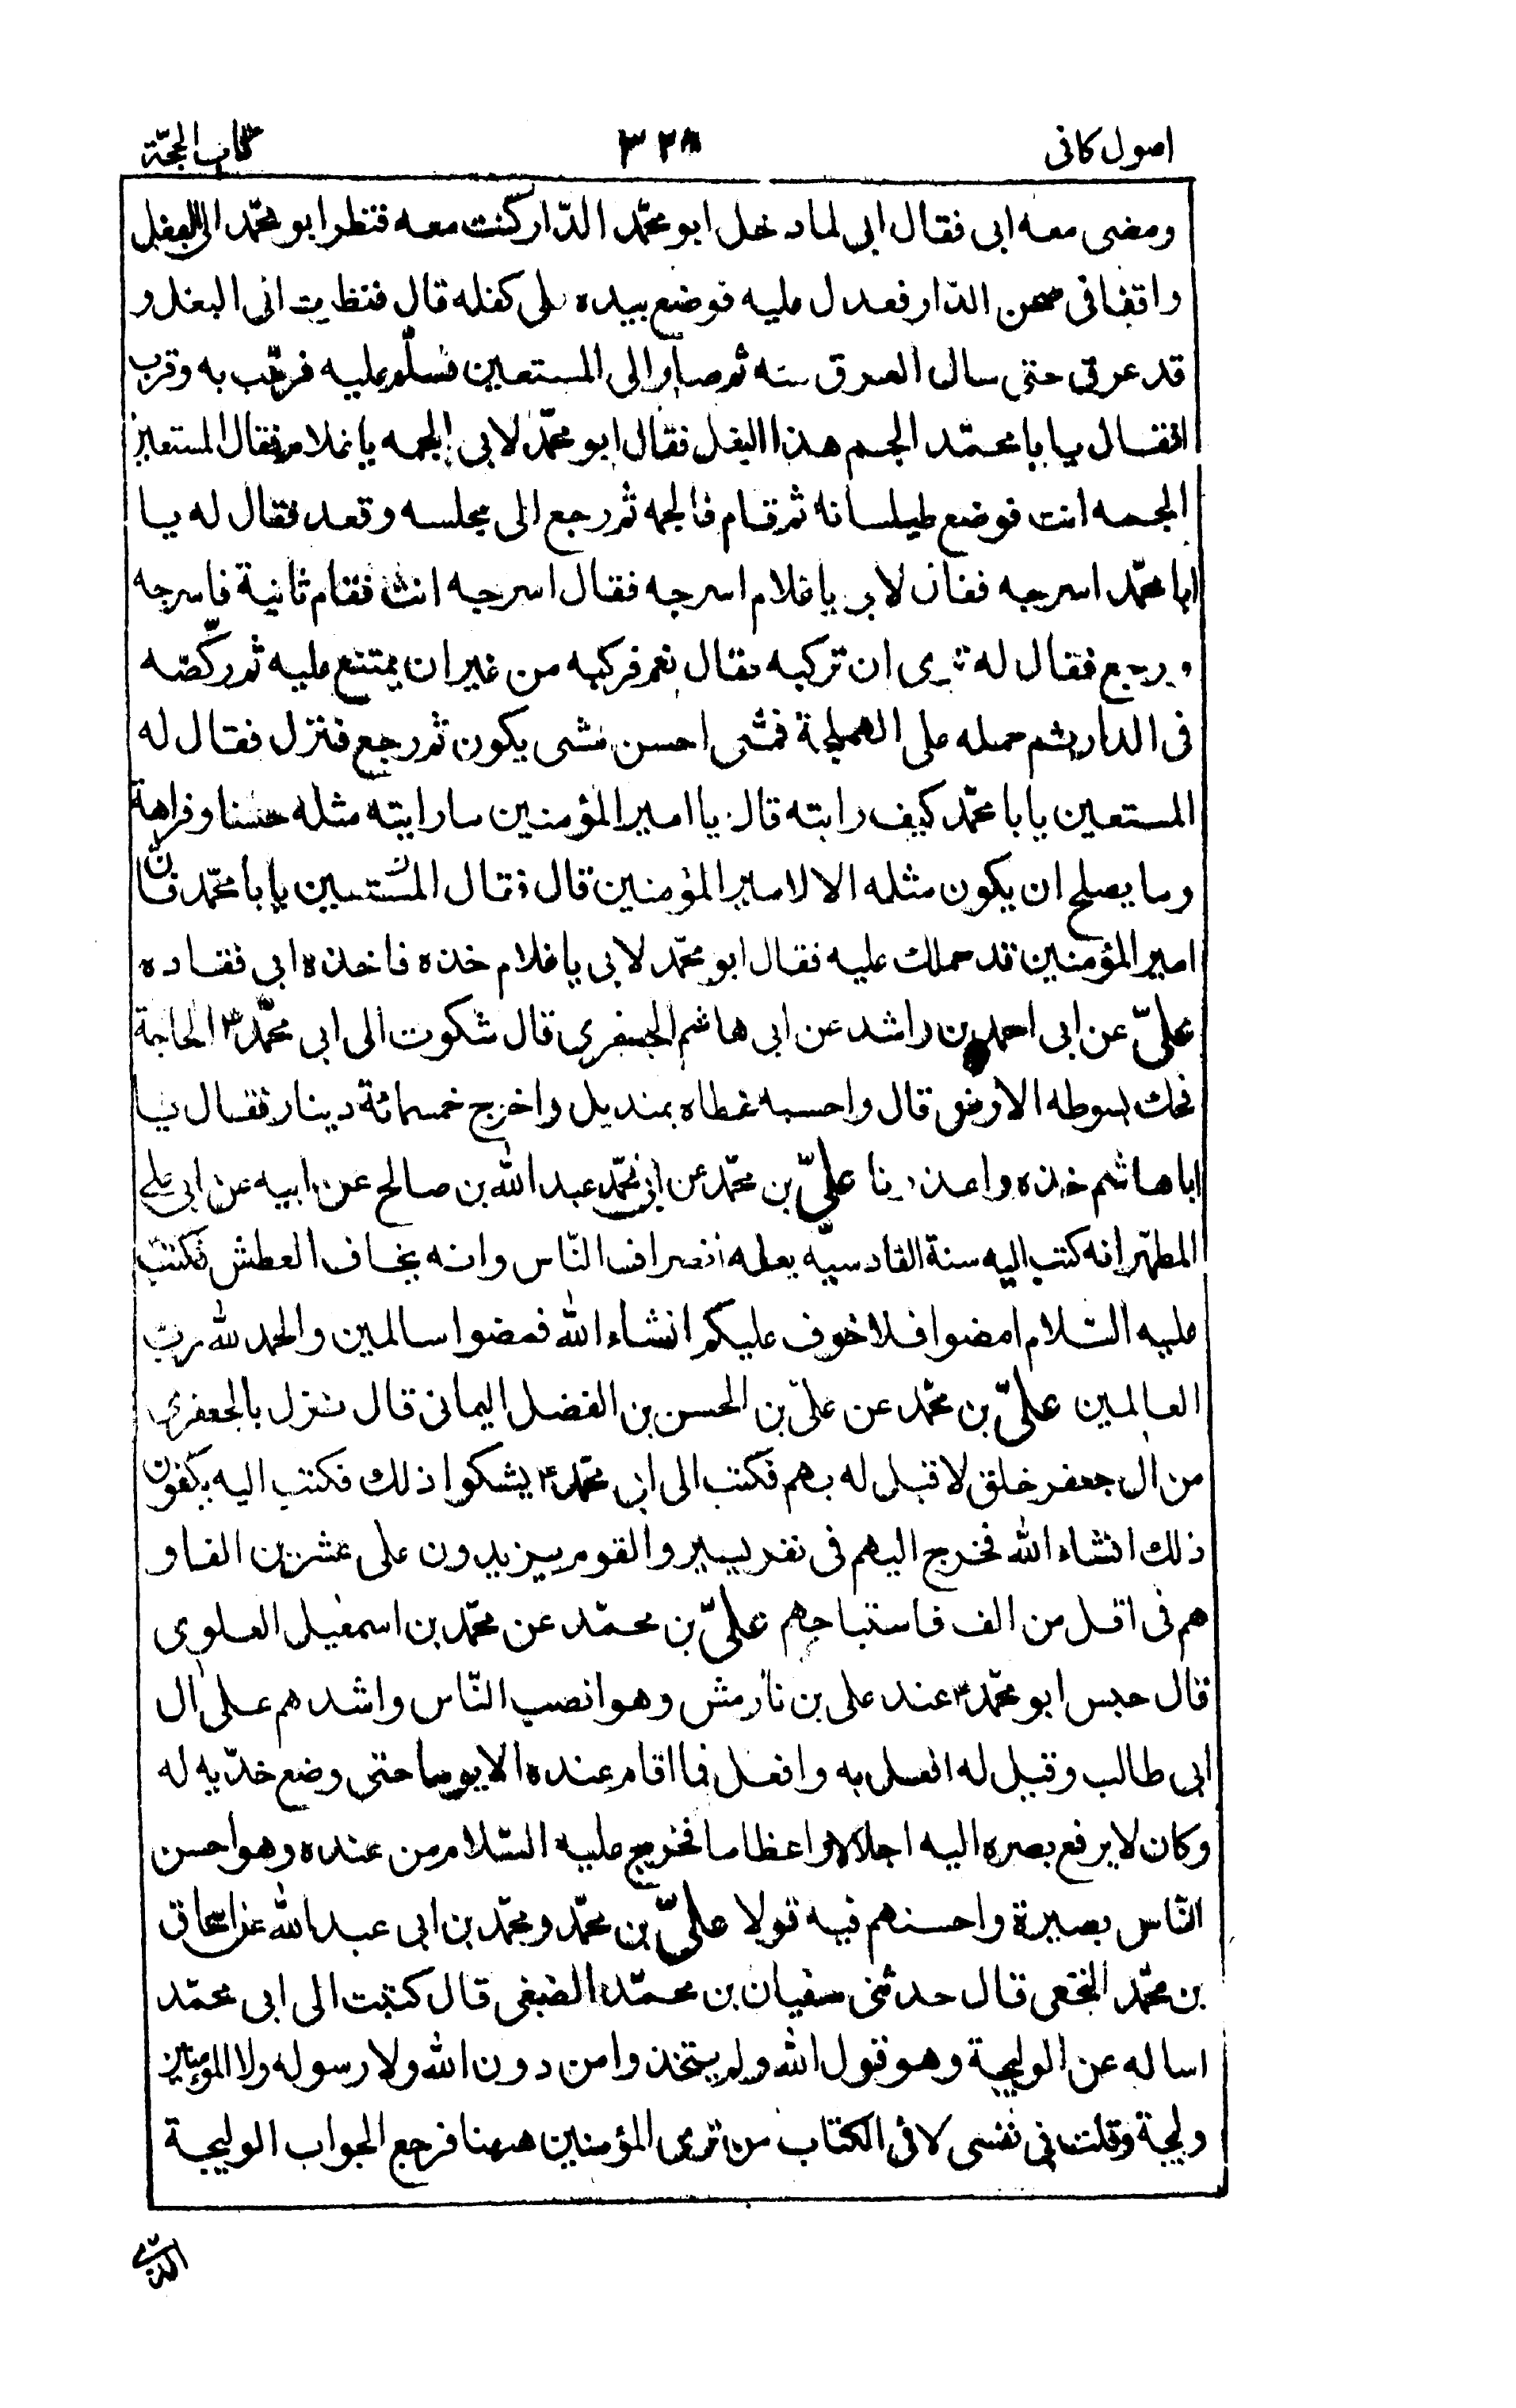 اصول كافى ٣٢٨ كتاب الحجّة
ومضى معه ابى فقال ابى لما دخل ابو محمّد الدّار كنت معه فنظر ابو محمّد الى البغل
واقفا فى صحن الدّار فعدل عليه فوضع بيده على كفله قال فنظرت الى البغل و
قد عرق حتى سال العرق منه ثم صار الى المستعين فسلّم عليه فرحّب به وقرب
فقال يا ابا محمّد الجم هذا البغل فقال ابو محمّد لابى الجمه يا غلام فقال المستعين
الجمه انت فوضع طيلسانه ثم قام فالجمه ثم رجع الى مجلسه وقعد فقال له يا
ابا محمّد اسرجه فقال لابى يا غلام اسرجه فقال اسرجه انت فقام ثانية فاسرجه
ورجع فقال له ترى ان تركبه فقال نعم فركبه من غير ان يمتنع عليه ثم ركّضه
فى الدار ثم حمله على الهملجة فمشى احسن مشى يكون ثم رجع فنزل فقال له
المستعين يا با محمّد كيف رايته قال يا امير المؤمنين ما رايته مثله حسنا وفراهة
وما يصلح ان يكون مثله الا لامير المؤمنين قال فقال المستعين يا با محمّد فان
امير المؤمنين قد حملك عليه فقال ابو محمّد لابى يا غلام خذه فاخذه ابى فقاده
علىّ عن ابى احمد بن راشد عن ابى هاشم الجعفرى قال شكوت الى ابى محمّد ع الحاجة
فحك بسوطه الارض قال واحسبه غطاه بمنديل واخرج خمسمائة دينار فقال يا
ابا هاشم خذه واعذرنا علىّ بن محمّد عن ابى محمّد عبد الله بن صالح عن ابيه عن ابى على
المطهّر انه كتب اليه سنة القادسيّة يعلمه انصراف النّاس وانه يخاف العطش فكتب
عليه السّلام امضوا فلا خوف عليكم انشاء الله فمضوا سالمين والحمد لله ربّ
العالمين علىّ بن محمّد عن علىّ بن الحسن بن الفضل اليمانى قال نزل بالجعفرى
من ال جعفر خلق لا قبل له بهم فكتب الى ابى محمّد ع يشكوا ذلك فكتب اليه يكفون
ذلك انشاء الله فخرج اليهم فى نفر يسير والقوم يزيدون على عشرين الفا و
هم فى اقل من الف فاستباحهم علىّ بن محمّد عن محمّد بن اسمعيل العلوى
قال حبس ابو محمّد ع عند على بن نارمش وهو انصب النّاس واشدهم على ال
ابى طالب وقيل له افعل به وافعل فما اقام عنده الا يوما حتى وضع خدّيه له
وكان لا يرفع بصره اليه اجلالا واعظاما فخرج عليه السّلام من عنده وهو احسن
النّاس بصيرة واحسنهم فيه قولا علىّ بن محمّد ومحمّد بن ابى عبد الله عن اسحاق
بن محمّد النخعى قال حدثنى سفيان بن محمّد الضبغى قال كتبت الى ابى محمّد
اساله عن الوليجة وهو قول الله ولم يتخذوا من دون الله ولا رسوله ولا المؤمنين
وليجة وقلت فى نفسى لا فى الكتاب من ترى المؤمنين ههنا فرجع الجواب الوليجة
الذى